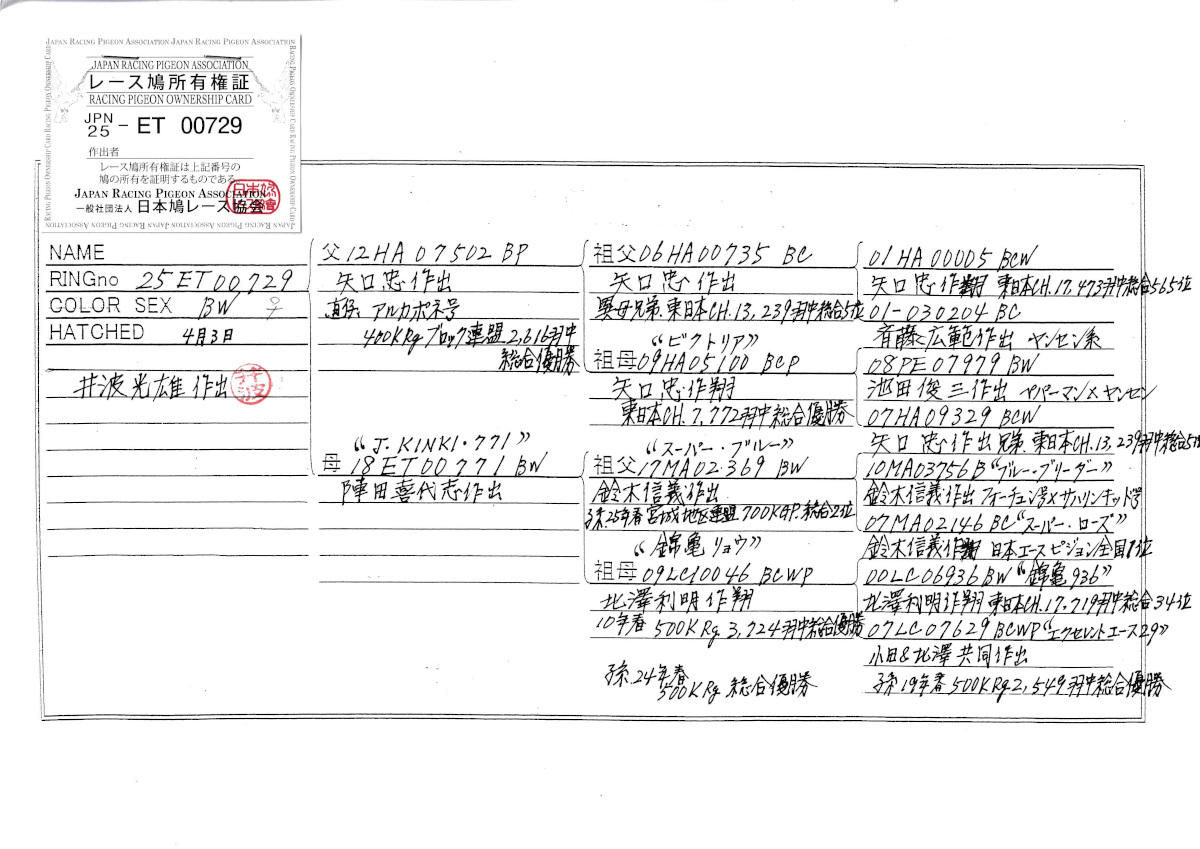 JAPAN RACING PIGEON ASSOCIATION JAPAN RACING PIGEON ASSOCIATION
JAPAN RACING PIGEON ASSOCIATION
レース鳩所有権証
RACING PIGEON OWNERSHIP CARD
JPN 25 - ET 00729
作出者
レース鳩所有権証は上記番号の
鳩の所有を証明するものである。
JAPAN RACING PIGEON ASSOCIATION
一般社団法人 日本鳩レース協会
NAME
RINGno 25ET00729
COLOR SEX BW ♀
HATCHED 4月3日
井波光雄 作出
井波
父 12HA07502 BP
矢口忠作出
直仔 アルカポネ号
400KRg ブロック連盟 2,616羽中
総合優勝
“J.KINKI・771”
母 18ET00771 BW
陣田喜代志作出
祖父 06HA00735 BC
矢口忠作出
異母兄弟.東日本CH.13,239羽中総合5位
“ビクトリア”
祖母 09HA05100 BCP
矢口忠作翔
東日本CH.7,772羽中総合優勝
“スーパー・ブルー”
祖父 17MA02369 BW
鈴木信義作出
孫.25年春 宮城地区連盟 700KGP.総合2位
“錦亀リョウ”
祖母 09LC10046 BCWP
北澤利明作翔
10年春 500KRg.3,724羽中総合優勝
孫.24年春
500KRg 総合優勝
01HA00005 BCW
矢口忠作翔 東日本CH.17,473羽中総合565位
01-030204 BC
斉藤広範作出 ヤンセン系
08PE07979 BW
池田俊三作出 ペパーマン×ヤンセン
07HA09329 BCW
矢口忠作出 兄弟.東日本CH.13,239羽中総合5位
10MA03756 B “ブルー・ブリーダー”
鈴木信義作出 フォーチュン号×サハリンキッド号
07MA02146 BC “スーパー・ローズ”
鈴木信義作翔 日本エースピジョン全国1位
00LC06936 BW “錦亀936”
北澤利明作翔 東日本CH.17,719羽中総合34位
07LC07629 BCWP “エクセレントエース29”
小田&北澤共同作出
孫 19年春 500KRg 2,549羽中総合優勝